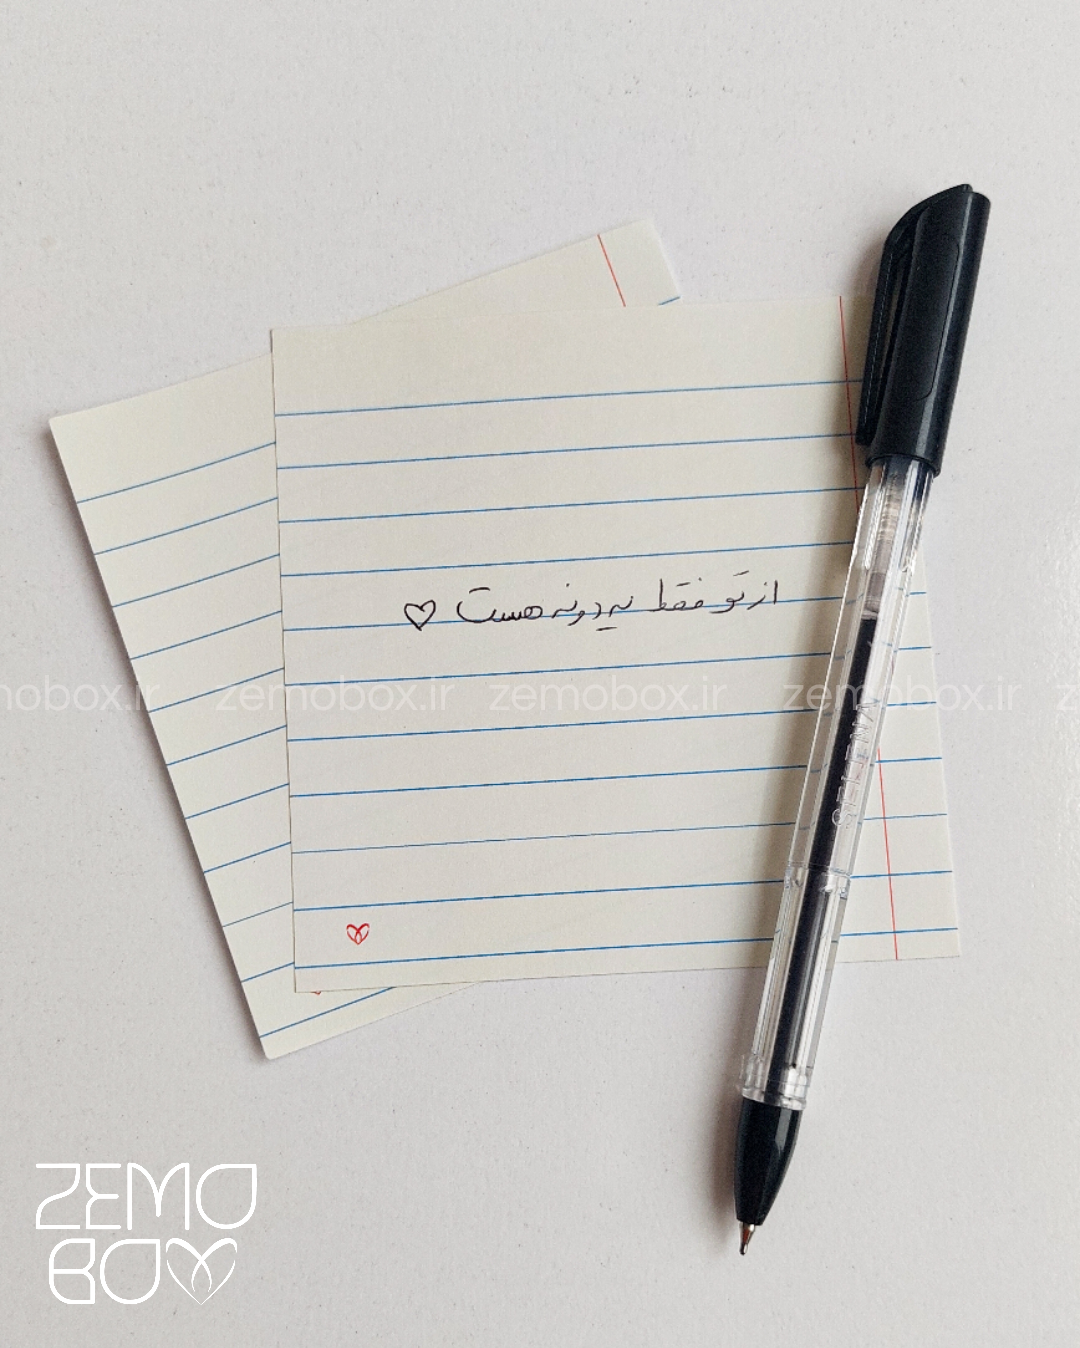 از تو فقط یه دونه هست ♡
zemobox.ir zemobox.ir zemobox.ir zemobox.ir
ZEMO
BOX